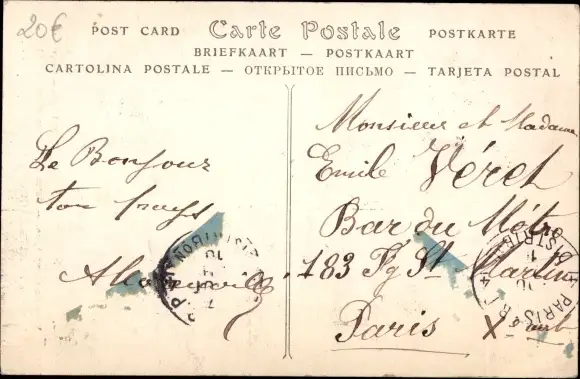 20€
POST CARD Carte Postale POSTKARTE
BRIEFKAART — POSTKAART
CARTOLINA POSTALE — ОТКРЫТОЕ ПИСЬМО — TARJETA POSTAL
Le Bonjour
ton
Monsieur et Madame
Emile Véret
Bar du Métro
183 Fg St Martin
Paris X
PARIS